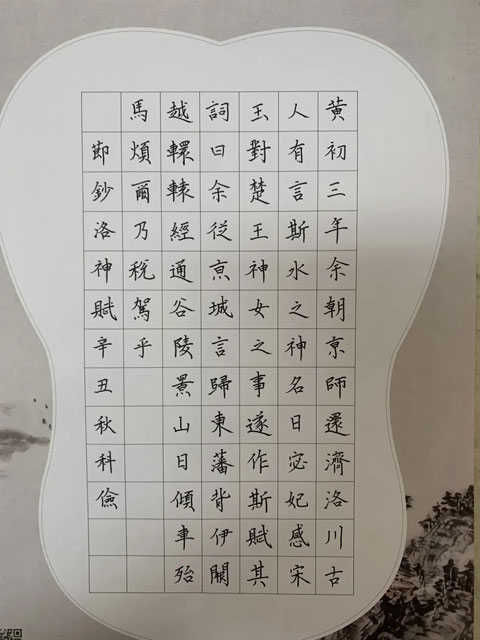 黄初三年余朝亰師還濟洛川古
人有言斯水之神名曰宓妃感宋
玉對楚王神女之事遂作斯賦其
詞曰余從亰城言歸東藩背伊闕
越轘轅經通谷陵景山日傾車殆
馬煩爾乃稅駕乎
節鈔洛神賦辛丑秋科儉